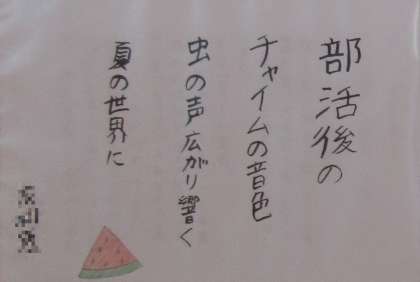 部活後の
チャイムの音色
虫の声広がり響く
夏の世界に